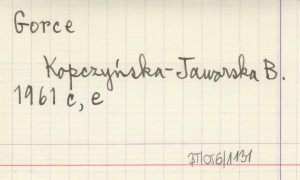 Gorce
Kopczyńska-Jaworska B.
1961 c, e